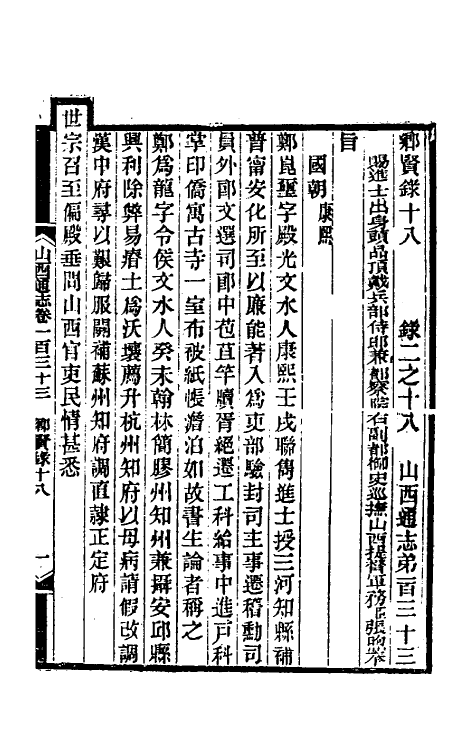 鄉賢錄十八　錄二之十八　山西通志弟一百三十三
賜進士出身頭品頂戴兵部侍郎兼都察院右副都御史巡撫山西提督軍務臣張煦奉
旨
國朝康熙
鄭崑璽字殿光文水人康熙壬戌聯雋進士授三河知縣補
普甯安化所至以廉能著入爲吏部驗封司主事遷稽勳司
員外郎文選司郎中苞苴竿牘胥絕遷工科給事中進戸科
掌印僑寓古寺一室布被紙帳澹泊如故書生論者稱之
鄭爲龍字令侯文水人癸未翰林簡膠州知州兼攝安邱縣
興利除弊易瘠土爲沃壤薦升杭州知府以母病請假改調
漢中府尋以艱歸服闋補蘇州知府調直隷正定府
世宗召至偏殿垂問山西官吏民情甚悉
山西通志卷一百三十三　鄉賢錄十八　一